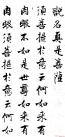 說名真是菩薩
須菩提於意云何如來有
肉眼不如是世尊如來有
肉眼須菩提於意云何如